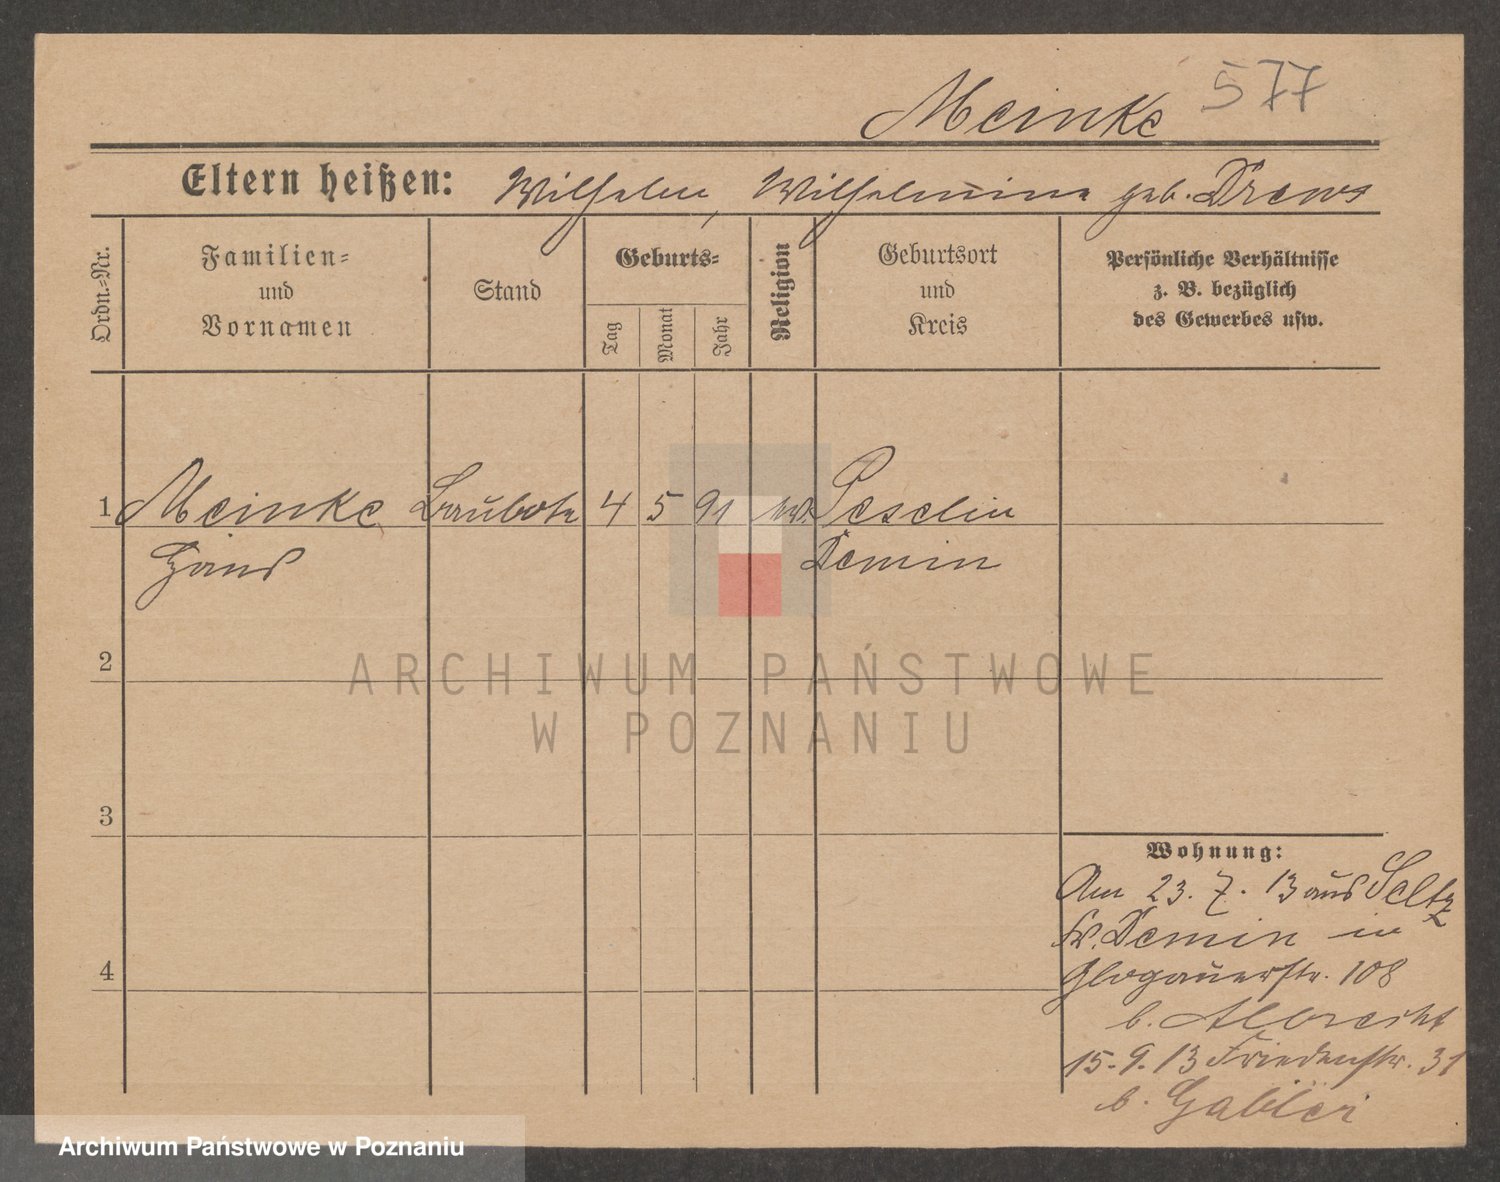 Meinke 577
Eltern heißen: Wilhelm, Wilhelmine geb. Drews
Ordn.-Nr.
Familien-
und
Vornamen
Stand
Geburts-
Tag
Monat
Jahr
Religion
Geburtsort
und
Kreis
Persönliche Verhältnisse
z. B. bezüglich
des Gewerbes usw.
1 Meinke Baubote 4 5 91 Peselin
Hans Demin
2
ARCHIWUM PAŃSTWOWE
W POZNANIU
3
Wohnung:
Am 23. 7. 13 aus Seltz
Kr. Demin in
4
Glogauerstr. 108
b. Albrecht
15. 9. 13 Friedenstr. 31
b. Gabler
Archiwum Państwowe w Poznaniu